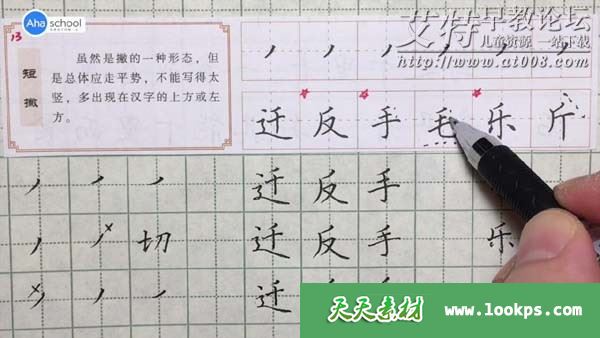 13
Aha school
短撇
虽然是撇的一种形态，但
是总体应走平势，不能写得太
竖，多出现在汉字的上方或左
方。
艾特早教论坛
儿童资源 一站下载
http://www.at008.com
迁 反 手 毛 乐 斤
迁 反 手
切 迁 反 手 乐
迁
天天素材 www.lookps.com